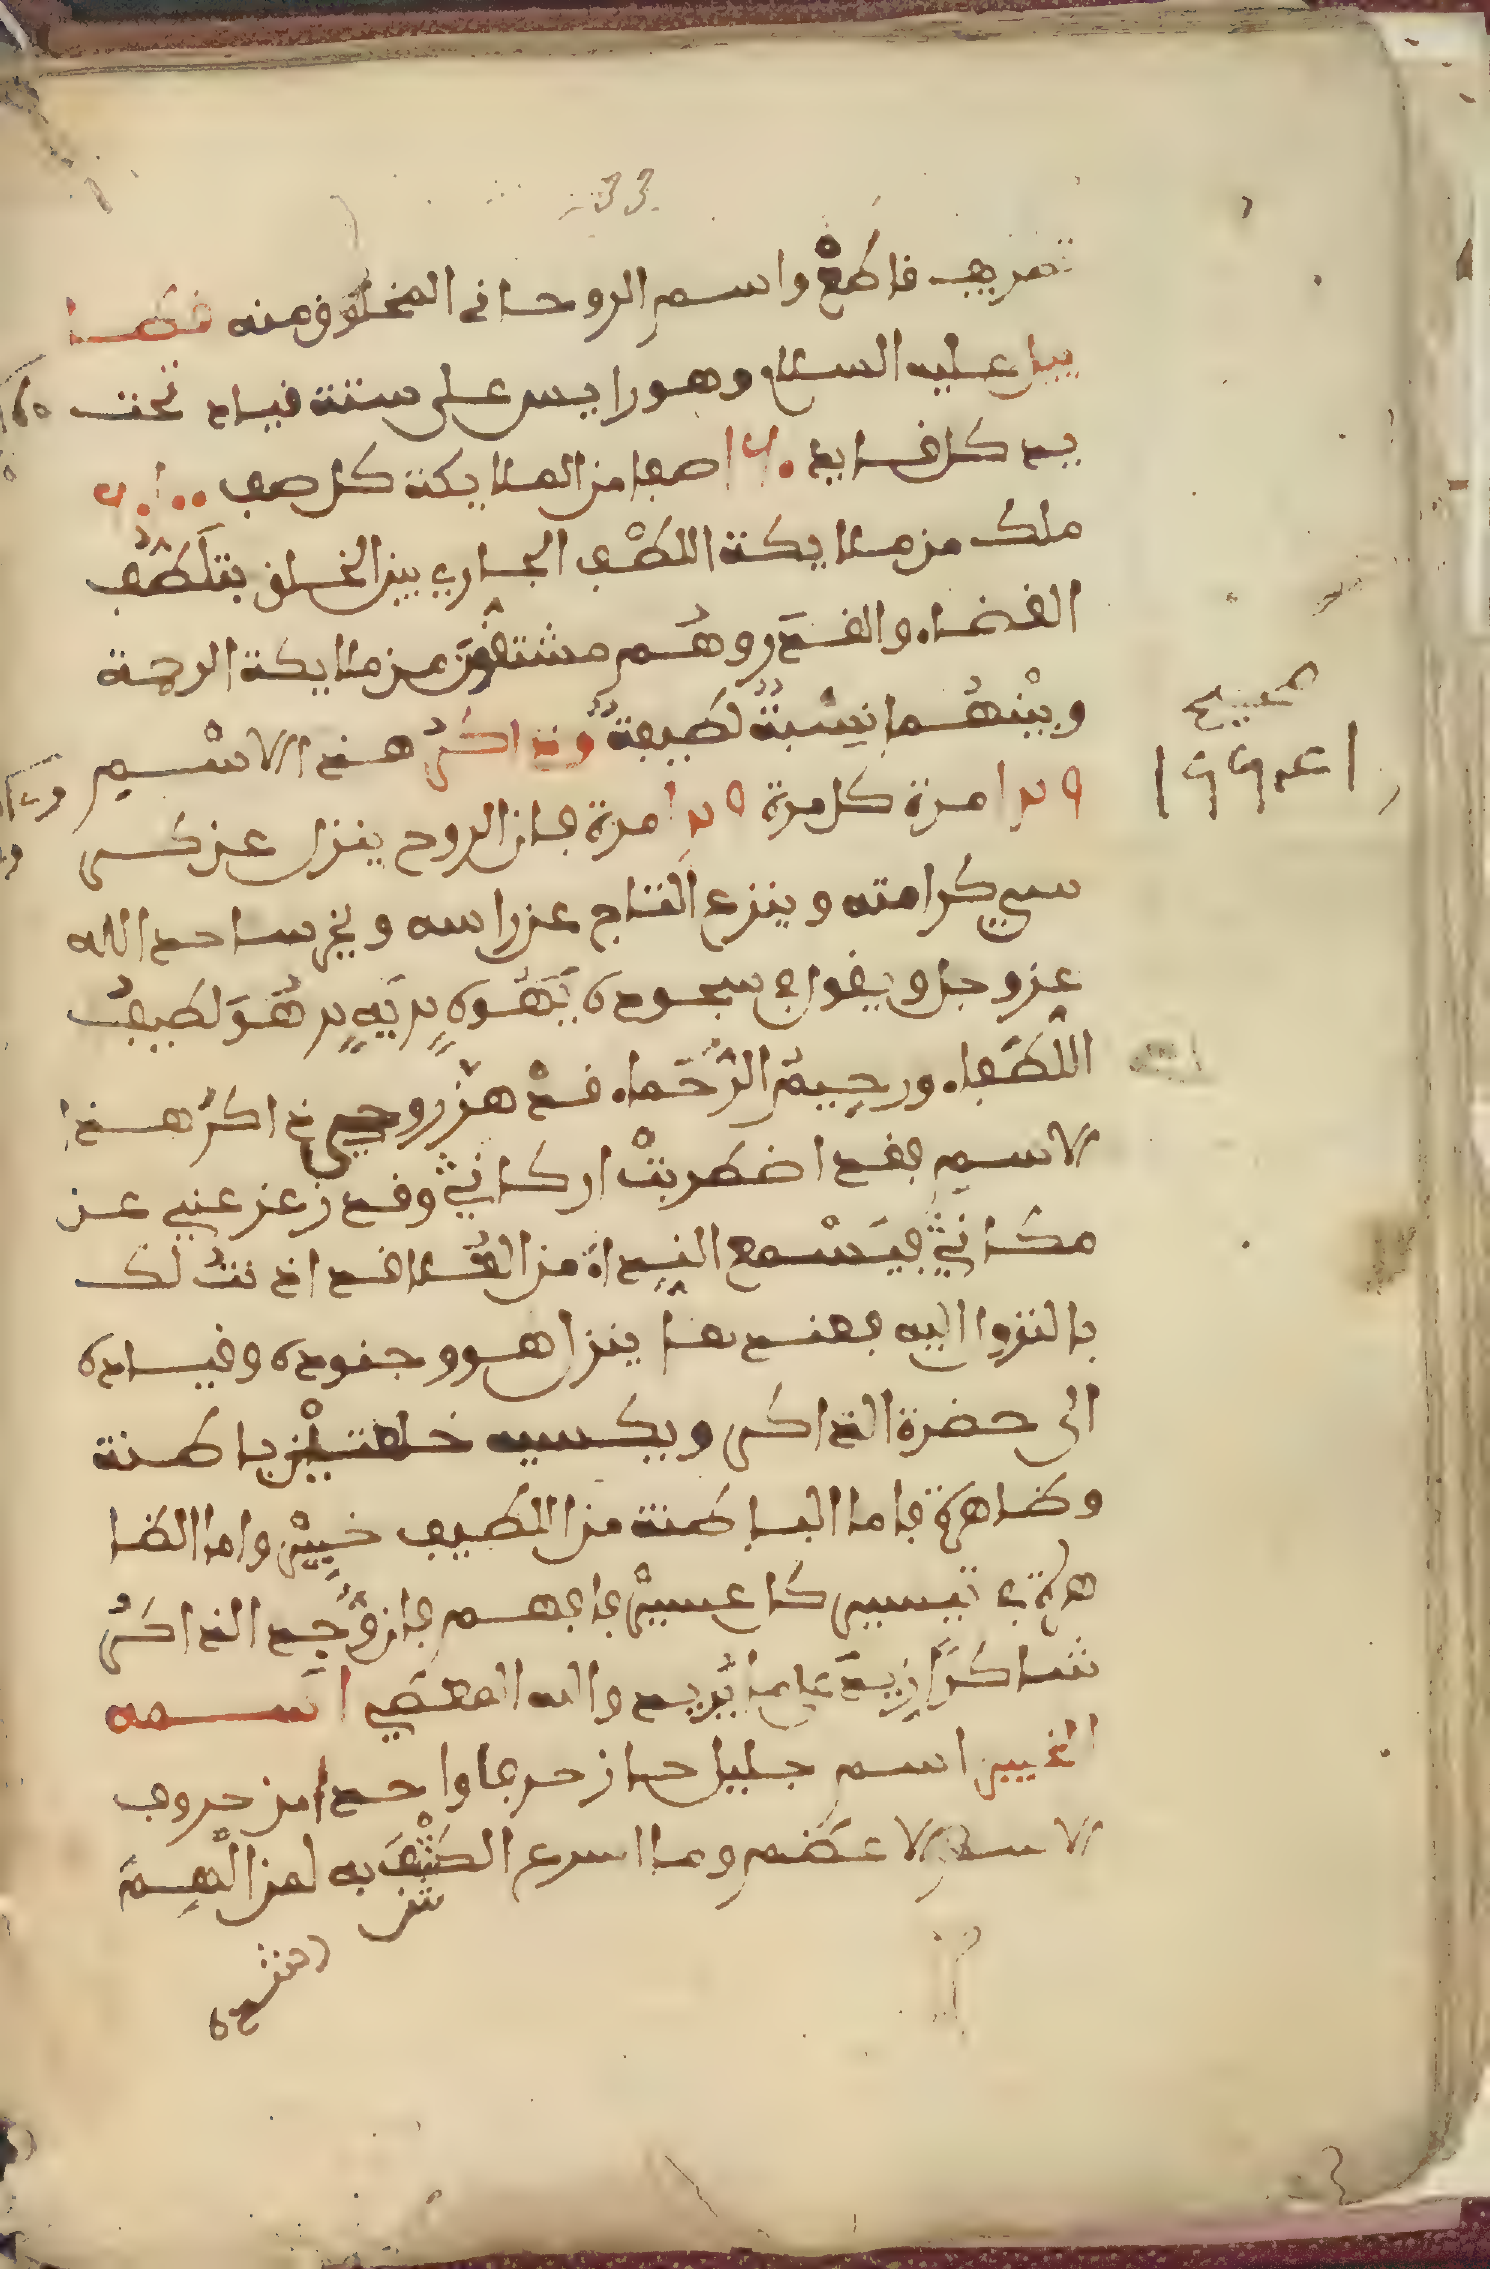 33
تصريف قاطعْ واسم الروحاني المخلوق منه قطيا
ييل عليه السلام وهو رايس على ستة قياد تحت
يد كل قايد صفا من الملايكة كل صف
ملك من ملايكة اللطْف الجاري بين الخلق بتلَطُّف
القضاء والقدَر وهُم مشتقون من ملايكة الرحمة
وبيْنهُما نِسْبةٌ لطيفةٌ وذاكرُ هذا الاسْم
مرة كل مرة مرة فان الروح ينزل عن كر
سي كرامته وينزع التاج عن راسه ويخر ساجد الله
عز وجل ويقول في سجوده هُوَ لطيفُ
اللُّطَفاء ورحيمُ الرُّحَماء قدْ هزّ روحي ذاكرُ هذا
الاسم فقد اضطربتْ اركاني وقد زعزعني عن
مكاني فيَسْمع النِداءَ من العُلا قد اذنتُ لك
بالنزول اليه فعندها ينزل هو وجنوده وقياده
الى حضرة الذاكر ويكسيه خلعتيْن باطنة
وظاهرة فاما الباطنة من اللطيف خبيْر واما الظا
هرة في تيسير كل عسيْر فافهم فان وُجِد الذاكرُ
شاكرًا زِيدَ على ما يُريد والله المعطي اسمه
الخبير اسم جليل حاز حرفا واحدا من حروف
الاسم الاعظم وما اسرع الكشْفَ به لمن الْهِمَ
كشف
ذكره
صحيح